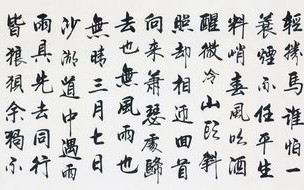 輕勝馬誰怕一
蓑煙雨任平生
料峭春風吹酒
醒微冷山頭斜
照却相迎回首
向來蕭瑟處歸
去也無風雨也
無晴三月七日
沙湖道中遇雨
雨具先去同行
皆狼狽余獨不